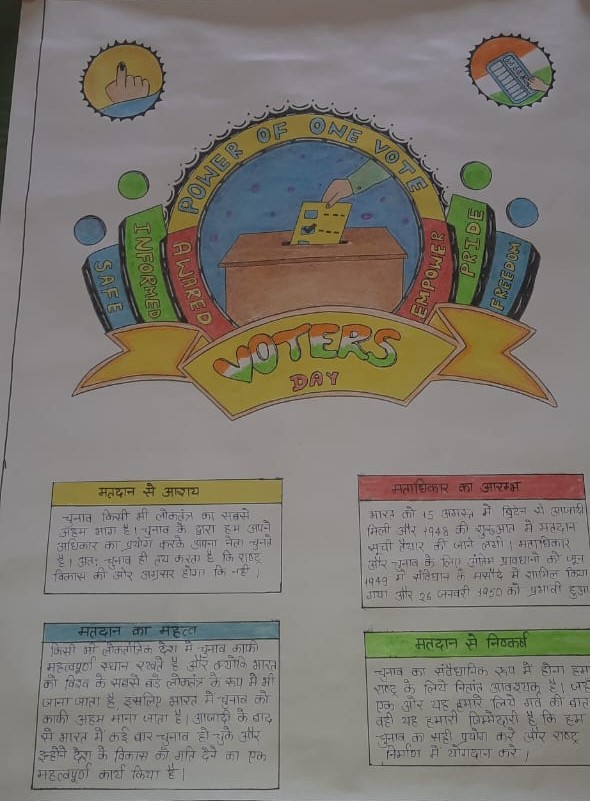 POWER OF ONE VOTE
SAFE
INFORMED
AWARED
EMPOWER
PRIDE
FREEDOM
VOTERS
DAY
मतदान से आशय
चुनाव किसी भी लोकतंत्र का सबसे
अहम भाग है। चुनाव के द्वारा हम अपने
अधिकार का प्रयोग करके अपना नेता चुनते
है। अतः चुनाव ही तय करता है कि राष्ट्र
विकास की ओर अग्रसर होगा कि नही।
मताधिकार का आरम्भ
भारत को 15 अगस्त में ब्रिटेन से आजादी
मिली और 1948 की शुरुआत में मतदान
सूची तैयार की जाने लगी। मताधिकार
और चुनाव के लिए अंतिम प्रावधानो को जून
1949 में संविधान के मसौदे में शामिल किया
गया और 26 जनवरी 1950 को प्रभावी हुआ
मतदान का महत्व
किसी भी लोकतांत्रिक देश में चुनाव काफी
महत्वपूर्ण स्थान रखते है और क्योकि भारत
को विश्व के सबसे बडे लोकतंत्र के रूप में भी
जाना जाता है इसलिए भारत में चुनाव को
काफी अहम माना जाता है। आजादी के बाद
से भारत में कई बार चुनाव हो चुके और
इन्होने देश के विकास को गति देने का एक
महत्वपूर्ण कार्य किया है।
मतदान से निष्कर्ष
चुनाव का संवैधानिक रूप में होना हमा
राष्ट्र के लिये नितांत आवश्यक है। जहाँ
एक और यह हमारे लिये गर्व की बात
वही यह हमारी जिम्मेदारी है कि हम
चुनाव का सही प्रयोग करे और राष्ट्र
निर्माण में योगदान करे।